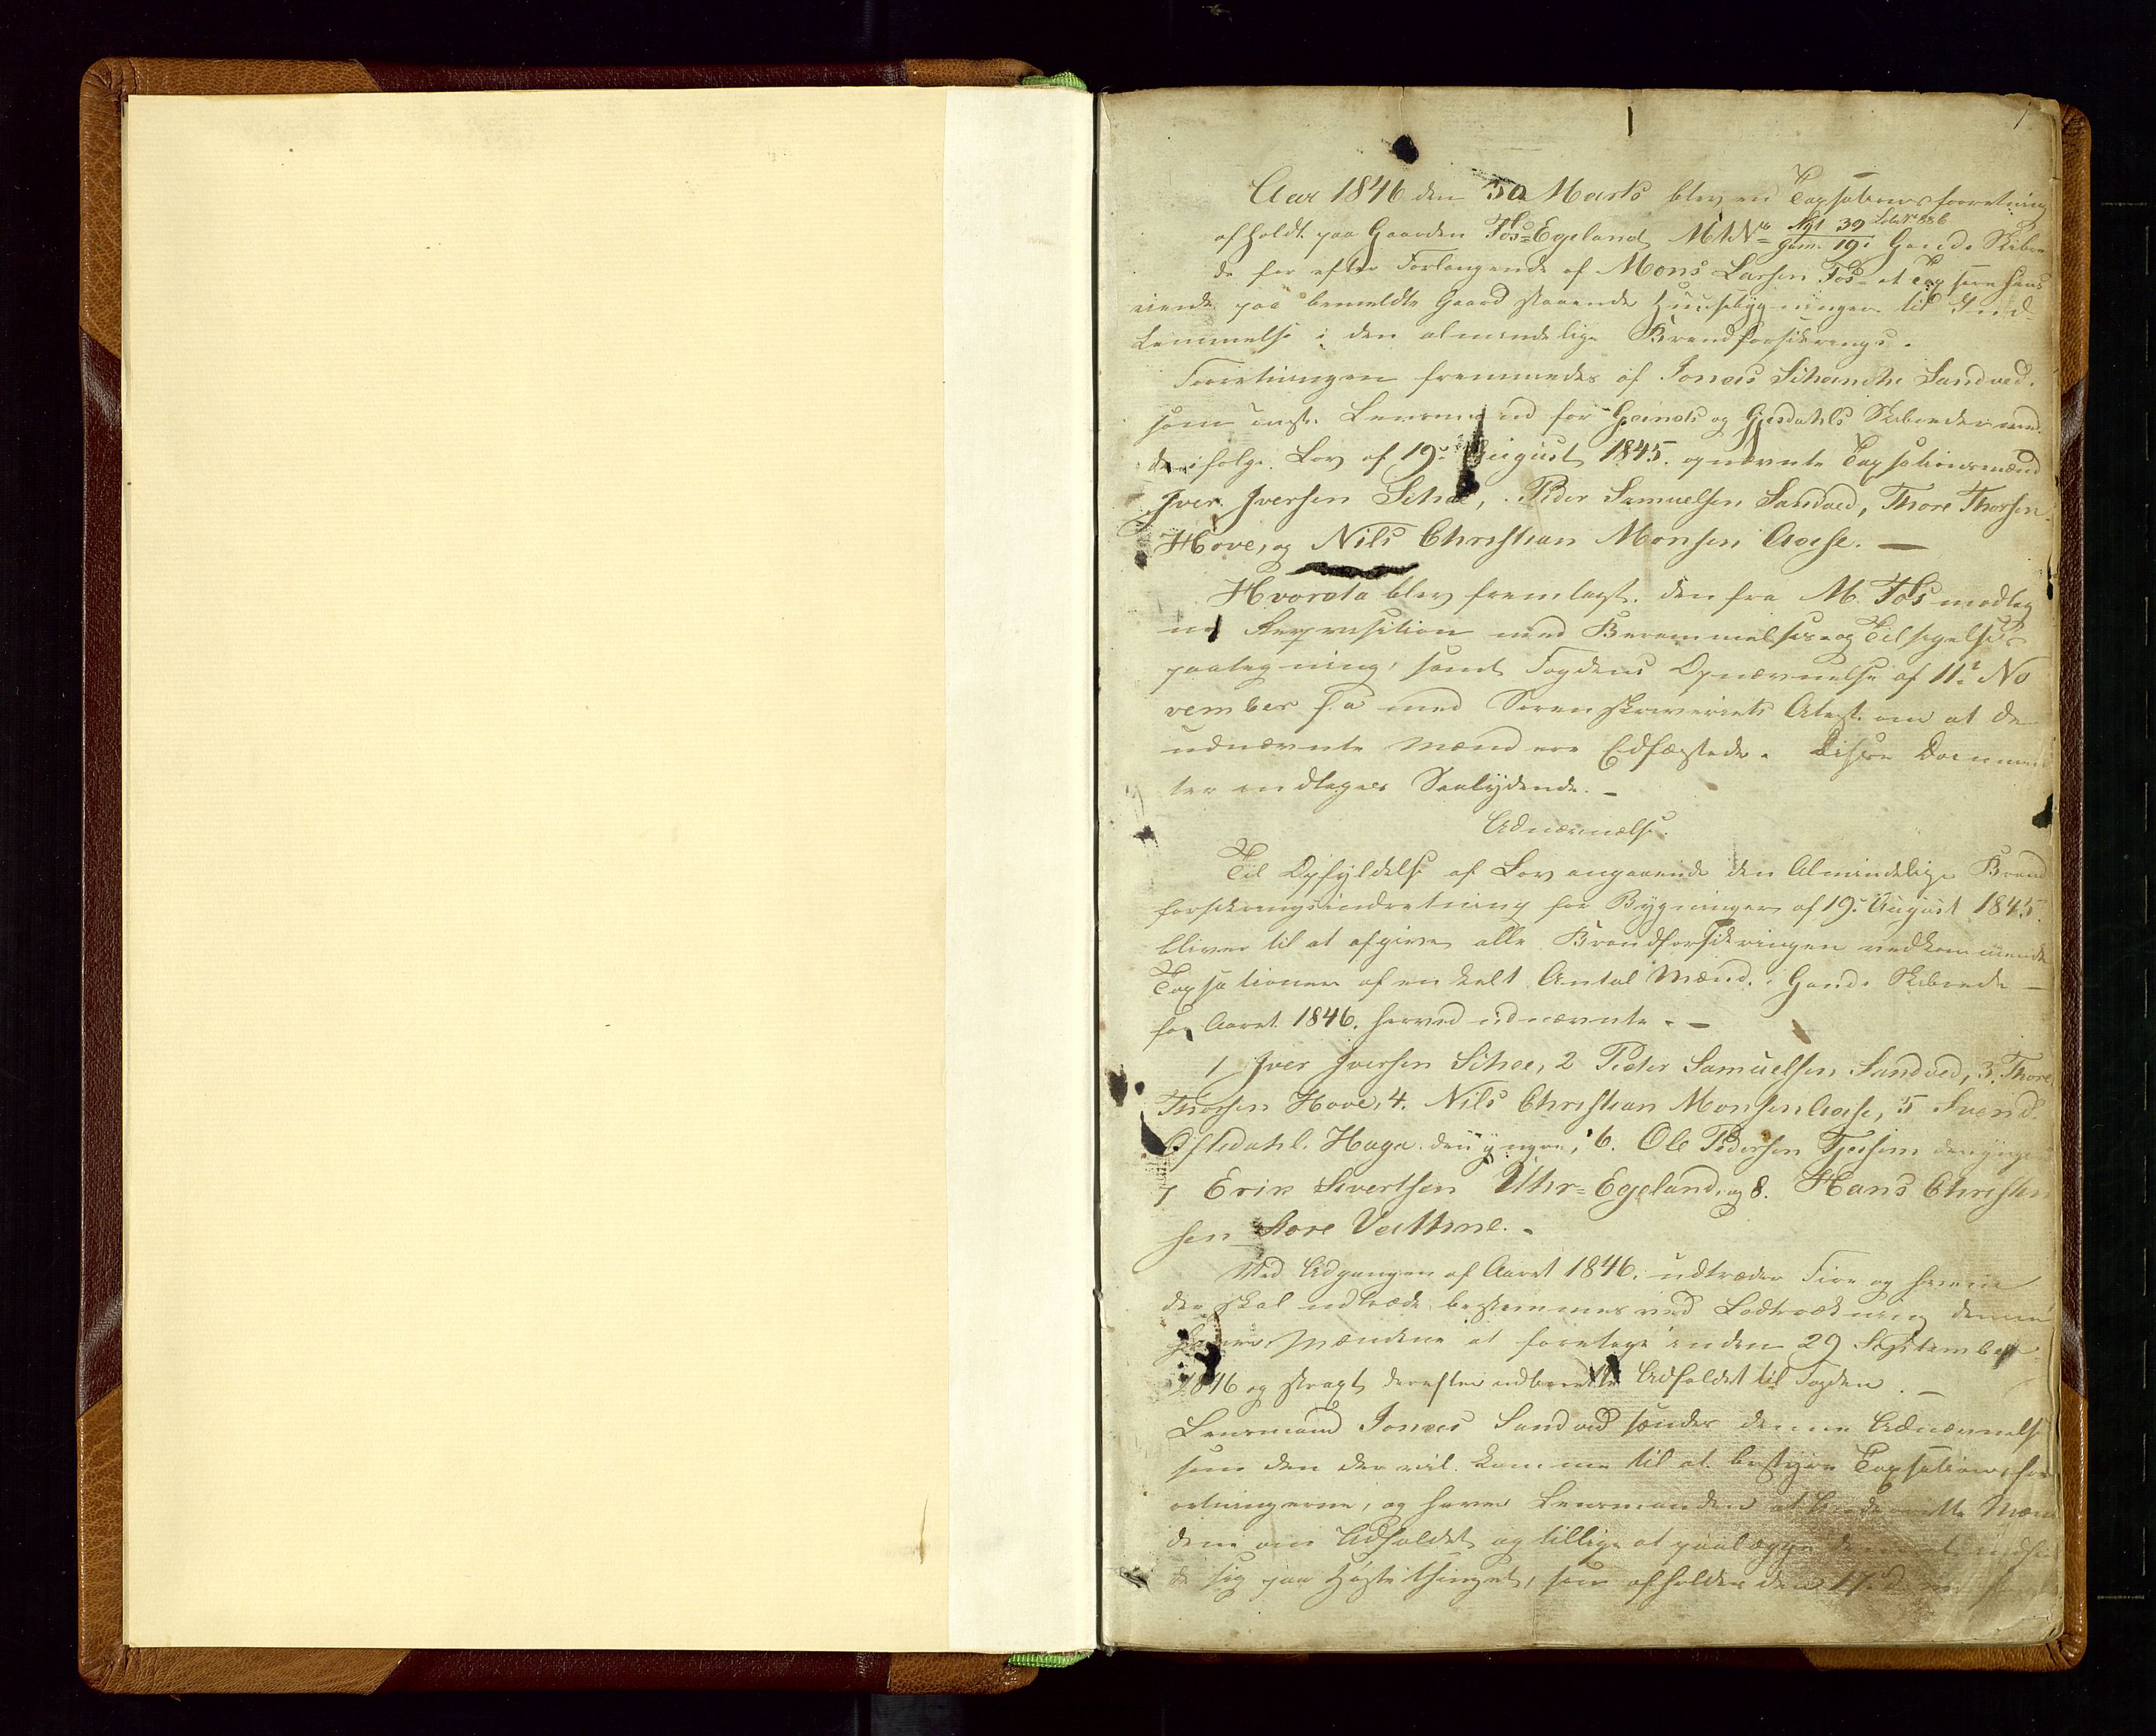 1
Aar 1846 den 30 Marts blev en Taxsationsforretning
afholdt paa Gaarden Fos=Egeland MtNo Nyt 39 LøbeNr 886
Gam. 19 i Gands Skibre
de for efter Forlangende af Mons Larsen Fos at taxsere hans
eiende paa bemeldte Gaard staaende Huusebygninger til Ind-
lemmelse i den almindelige Brandforsikrings.
Forretningen fremmedes af Jonas Schanche Sandved.
som const. Lensmand for Gands og Gjesdahls Skibreder med
de ifølge Lov af 19de August 1845 opnævnte Taxsationsmænd
Iver Iversen Schæ, Peder Samuelsen Sandved, Thore Thorsen
Hove, og Nils Christian Monsen Aase. —
Hvorda blev fremlagt den fra M. Fos modtag
ne Reqvisition med Berammelses og Tilsigelses
paategning, samt Fogdens Opnævnelse af 11te No
vember f. a. med Sorenskriveriets Atest. om at de
udnævnte Mænd ere Edfæstede. Disse Documen
ter indtages Saalydende. —
Udnævnelse.
Til Opfyldelse af Lov angaaende den Almindelige Brand
forsikringsindretning for Bygninger af 19de August 1845.
bliver til at afgive alle Brandforsikringen vedkommende
Taxsationer af enkelt Antal Mænd i Gands Skibrede —
for Aaret 1846. herved udnævnte. —
1 Iver Iversen Schæ, 2 Peder Samuelsen Sandved, 3. Thore
Thorsen Hove, 4. Nils Christian Monsen Aase, 5 Svend
Ofstedahl. Hage den yngre, 6. Ole Pedersen Tjessem den yngre
7 Erik Sivertsen Uthr=Egeland, og 8. Hans Christen
sen Store Vatthne. —
Ved Udgangen af Aaret 1846. udtræder Fire og hvem
der skal udtræde bestemmes ved Lodtrækning denne
haver Mændene at foretage inden 29 September
1846 og strax derefter indberette Udfaldet til Fogden. —
Lensmand Jonas Sandved sendes denne Udnævnelse
som den der vil komme til at bestyre Taxsationsfor
retningerne, og haver Lensmanden at underrette Mæn
dene om Udfaldet og tillige at paalægge dem at indfin
de sig paa Høstethinget, som afholdes den 17.